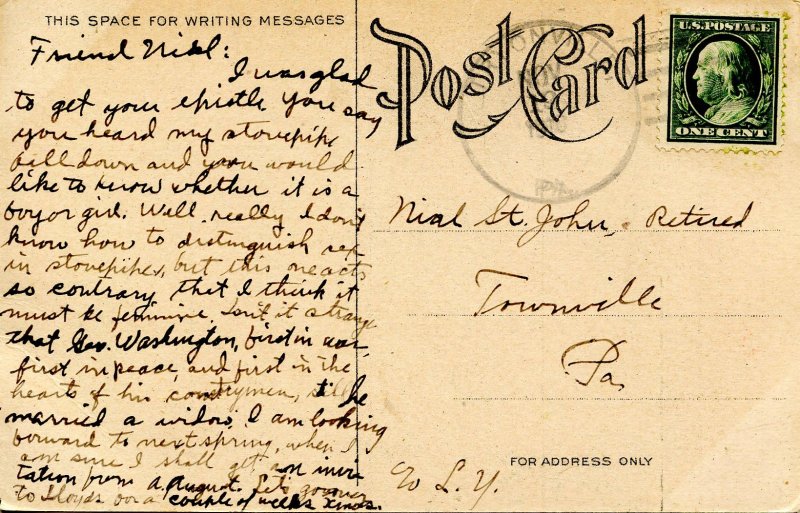 THIS SPACE FOR WRITING MESSAGES
Friend Nial:
I was glad
to get your epistle you say
you heard my stovepipe
fell down and you would
like to know whether it is a
boy or girl. Well, really I don't
know how to distinguish sex
in stovepipes, but this one acts
so contrary that I think it
must be feminine. Isn't it strange
that Geo. Washington, first in war,
first in peace, and first in the
hearts of his countrymen, he
married a widow. I am looking
forward to next spring, when I
am sure I shall get an invi
tation from a August. Let's go over
to Lloyds on a couple of weeks Xmas.
Post Card
U.S. POSTAGE
ONE CENT
TOWNVILLE
NOV
PA.
Nial St. John, Retired
Townville
Pa.
FOR ADDRESS ONLY
L. Y.